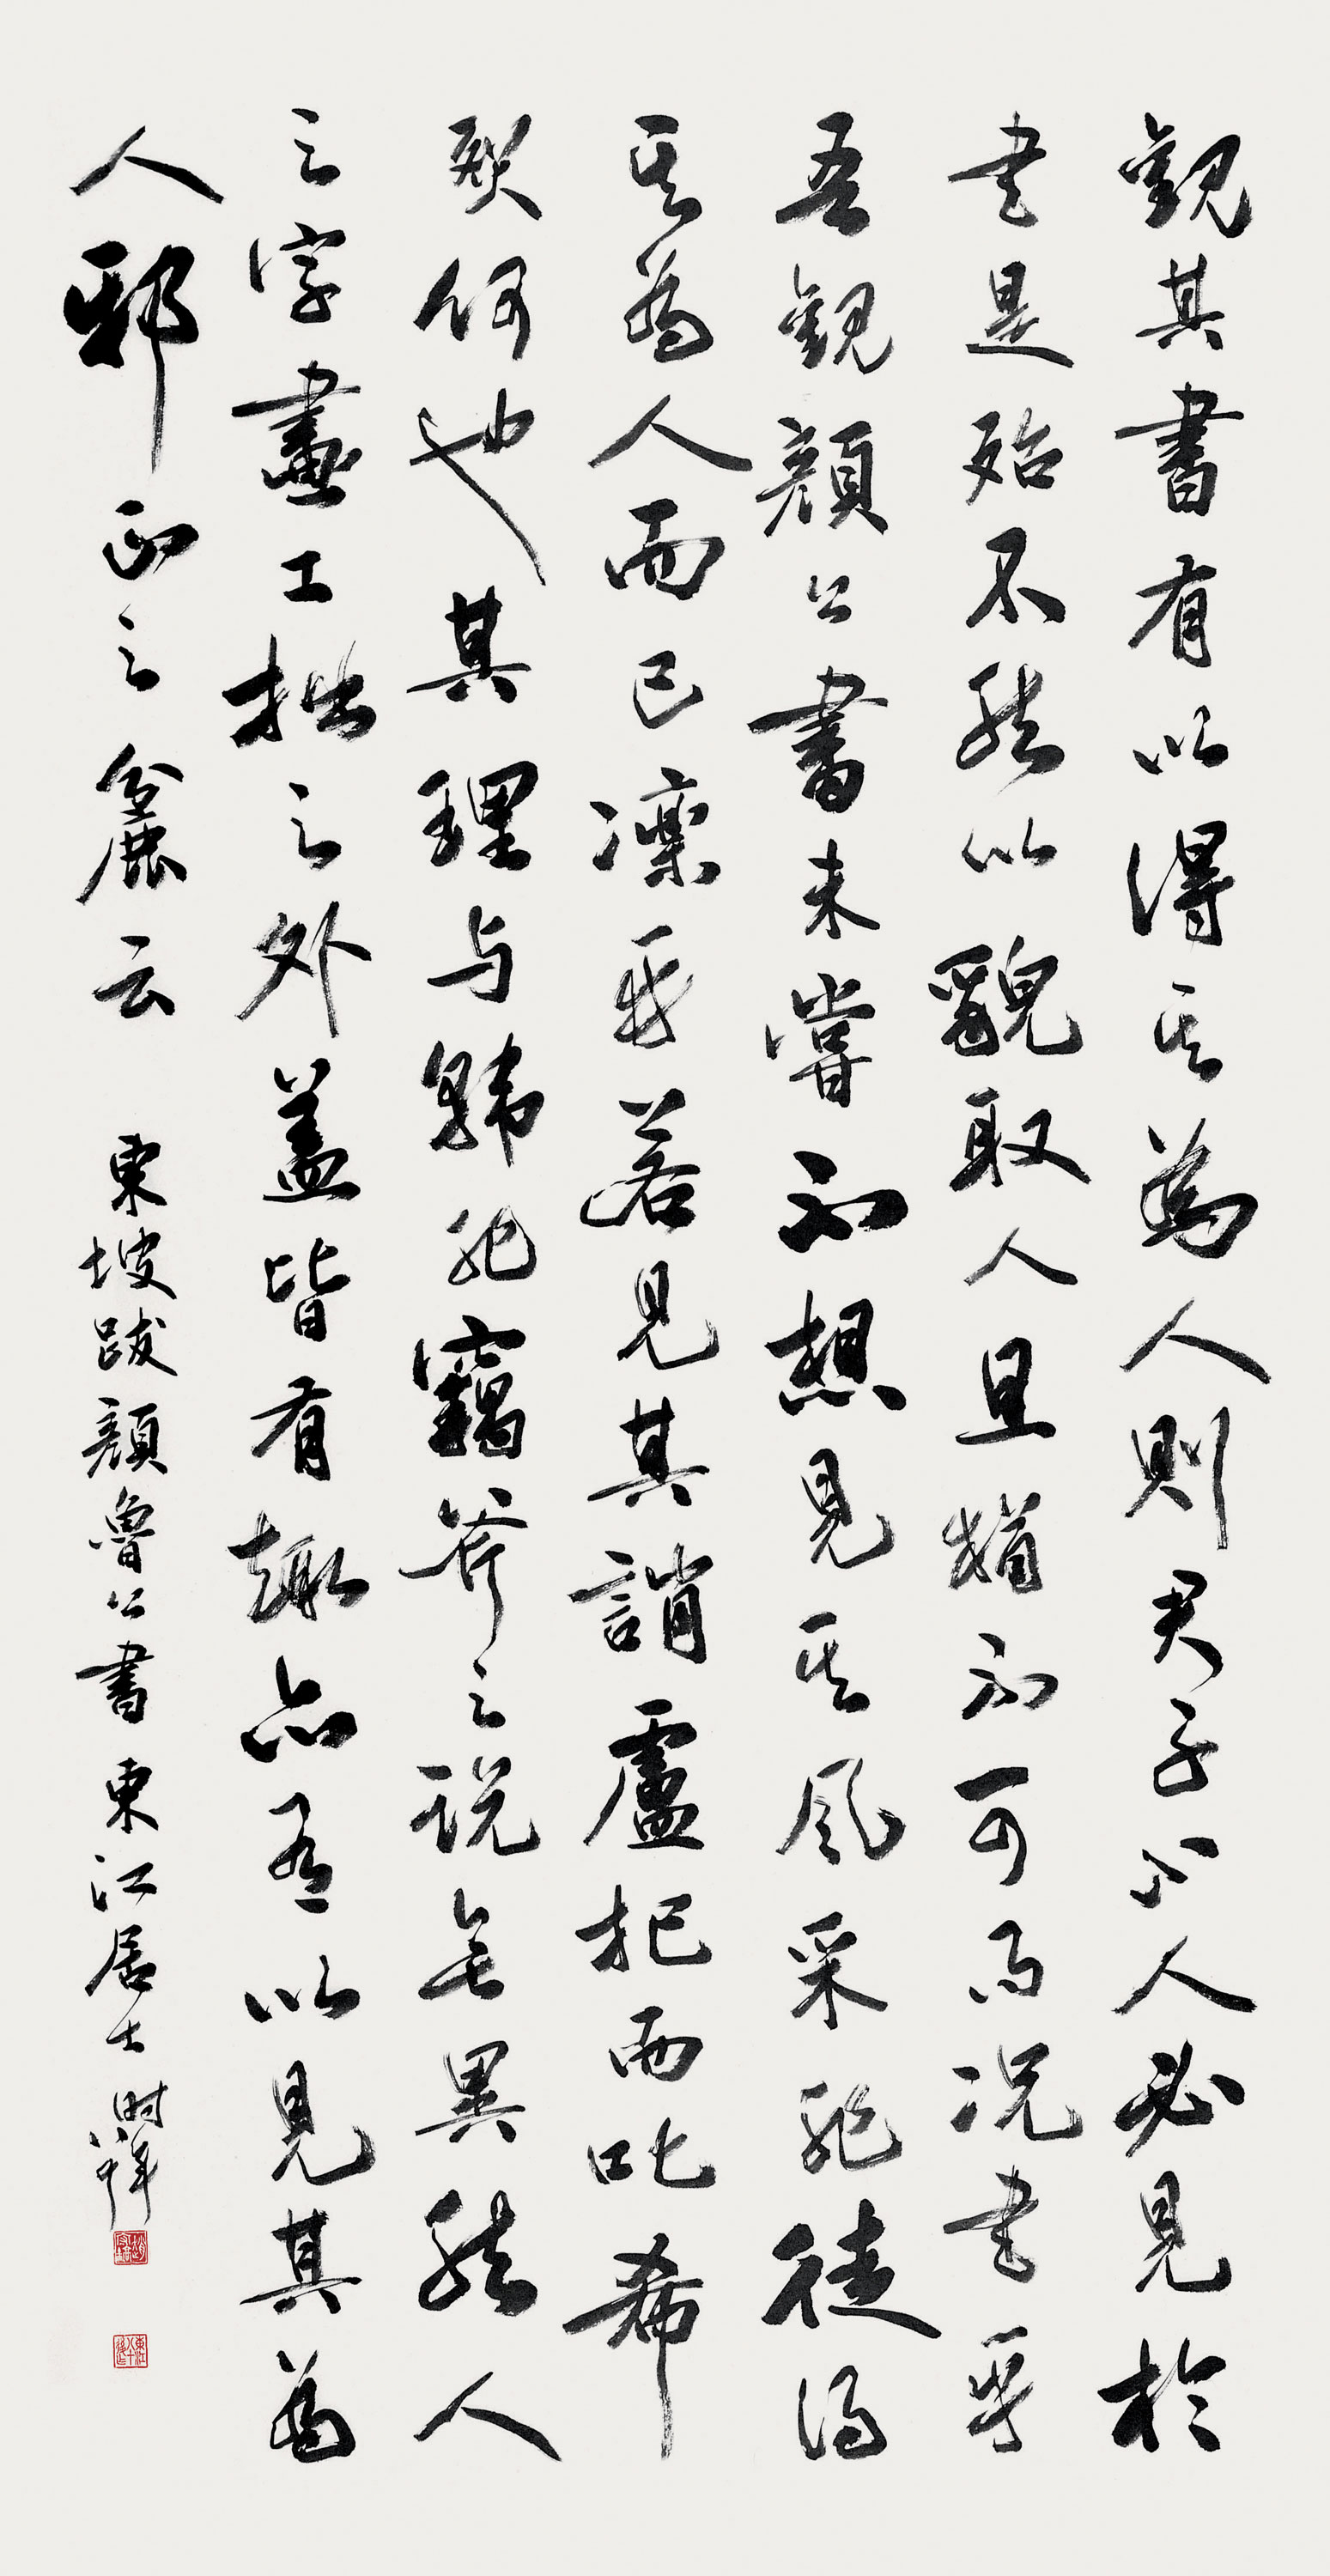 觀其書有以得其為人則君子小人必見於
書是殆不然以貌取人且猶不可而況書乎
吾觀顏公書未嘗不想見其風采非徒得
其為人而已凜乎若見其誚盧杞而叱希
烈何也其理与韓非竊斧之說無異然人
之字畫工拙之外蓋皆有趣亦有以見其為
人邪正之麤云 東坡跋顏魯公書東江居士时年八十